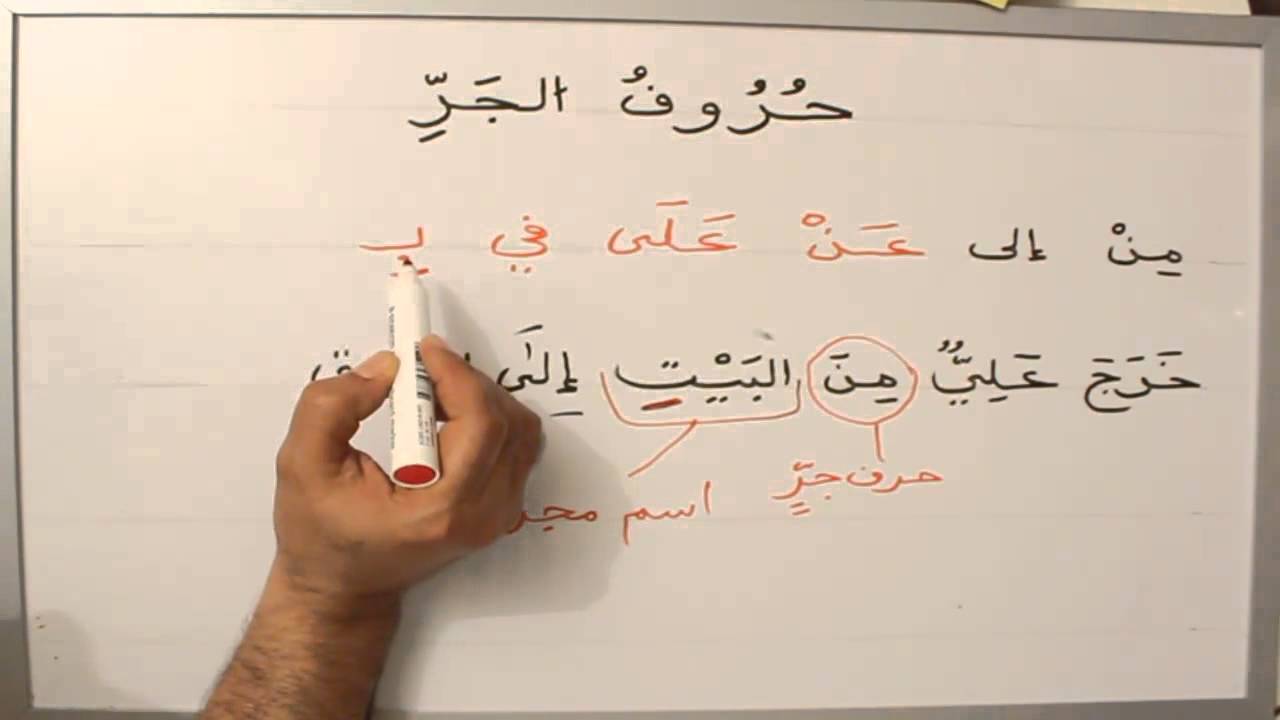 حُرُوفُ الجَرِّ
مِنْ إلى عَنْ عَلَى في بِـ
خَرَجَ عَلِيٌّ مِنَ البَيْتِ إِلَى
حرف جرٍّ
اسم